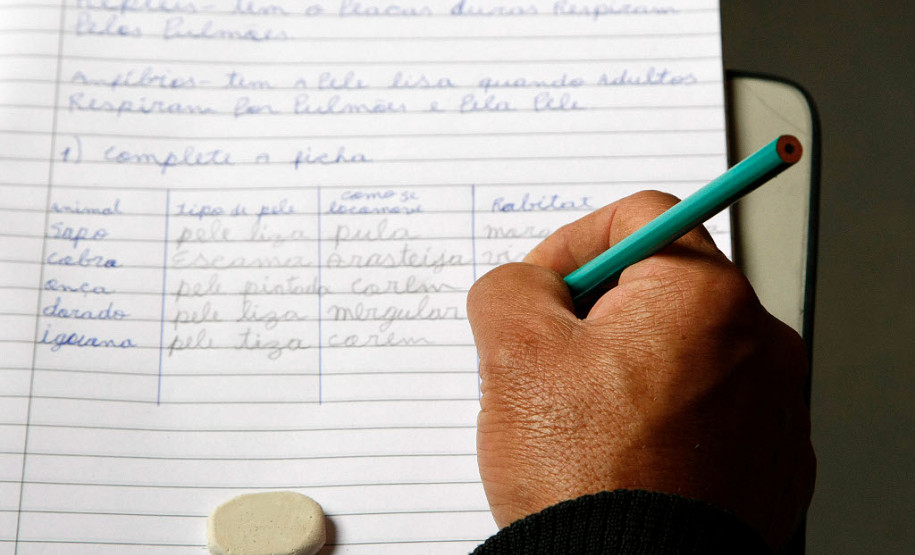 Répteis - tem o Placas duras Respiram
Pelos Pulmões
Anfíbios - tem a Pele lisa quando Adultos
Respiram Por Pulmões e Pela Pele
1) Complete a ficha
animal tipo de pele como se locomove Habitat
Sapo pele liza pula
cobra Escama Arasteija
onça pele pintada corem
dorado pele liza mergular
igoana pele liza corem